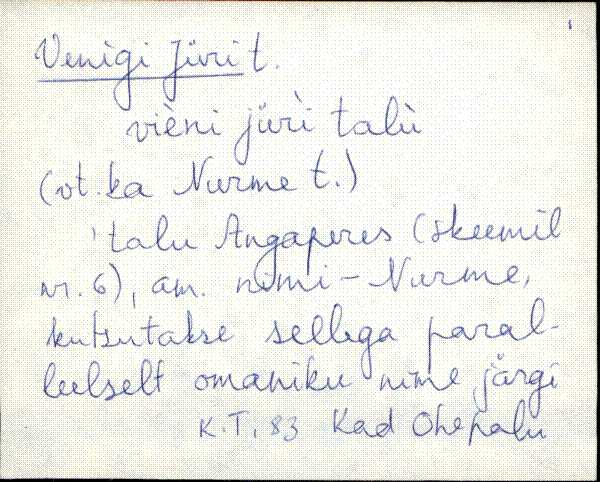 Venigi Jüri t.
vièni jüri talù
(vt. ka Nurme t.)
'talu Angaperes (skeemil
nr. 6), am. nimi - Nurme,
kutsutakse sellega paral-
leelselt omaniku nime järgi
K.T. 83 Kad Ohepalu